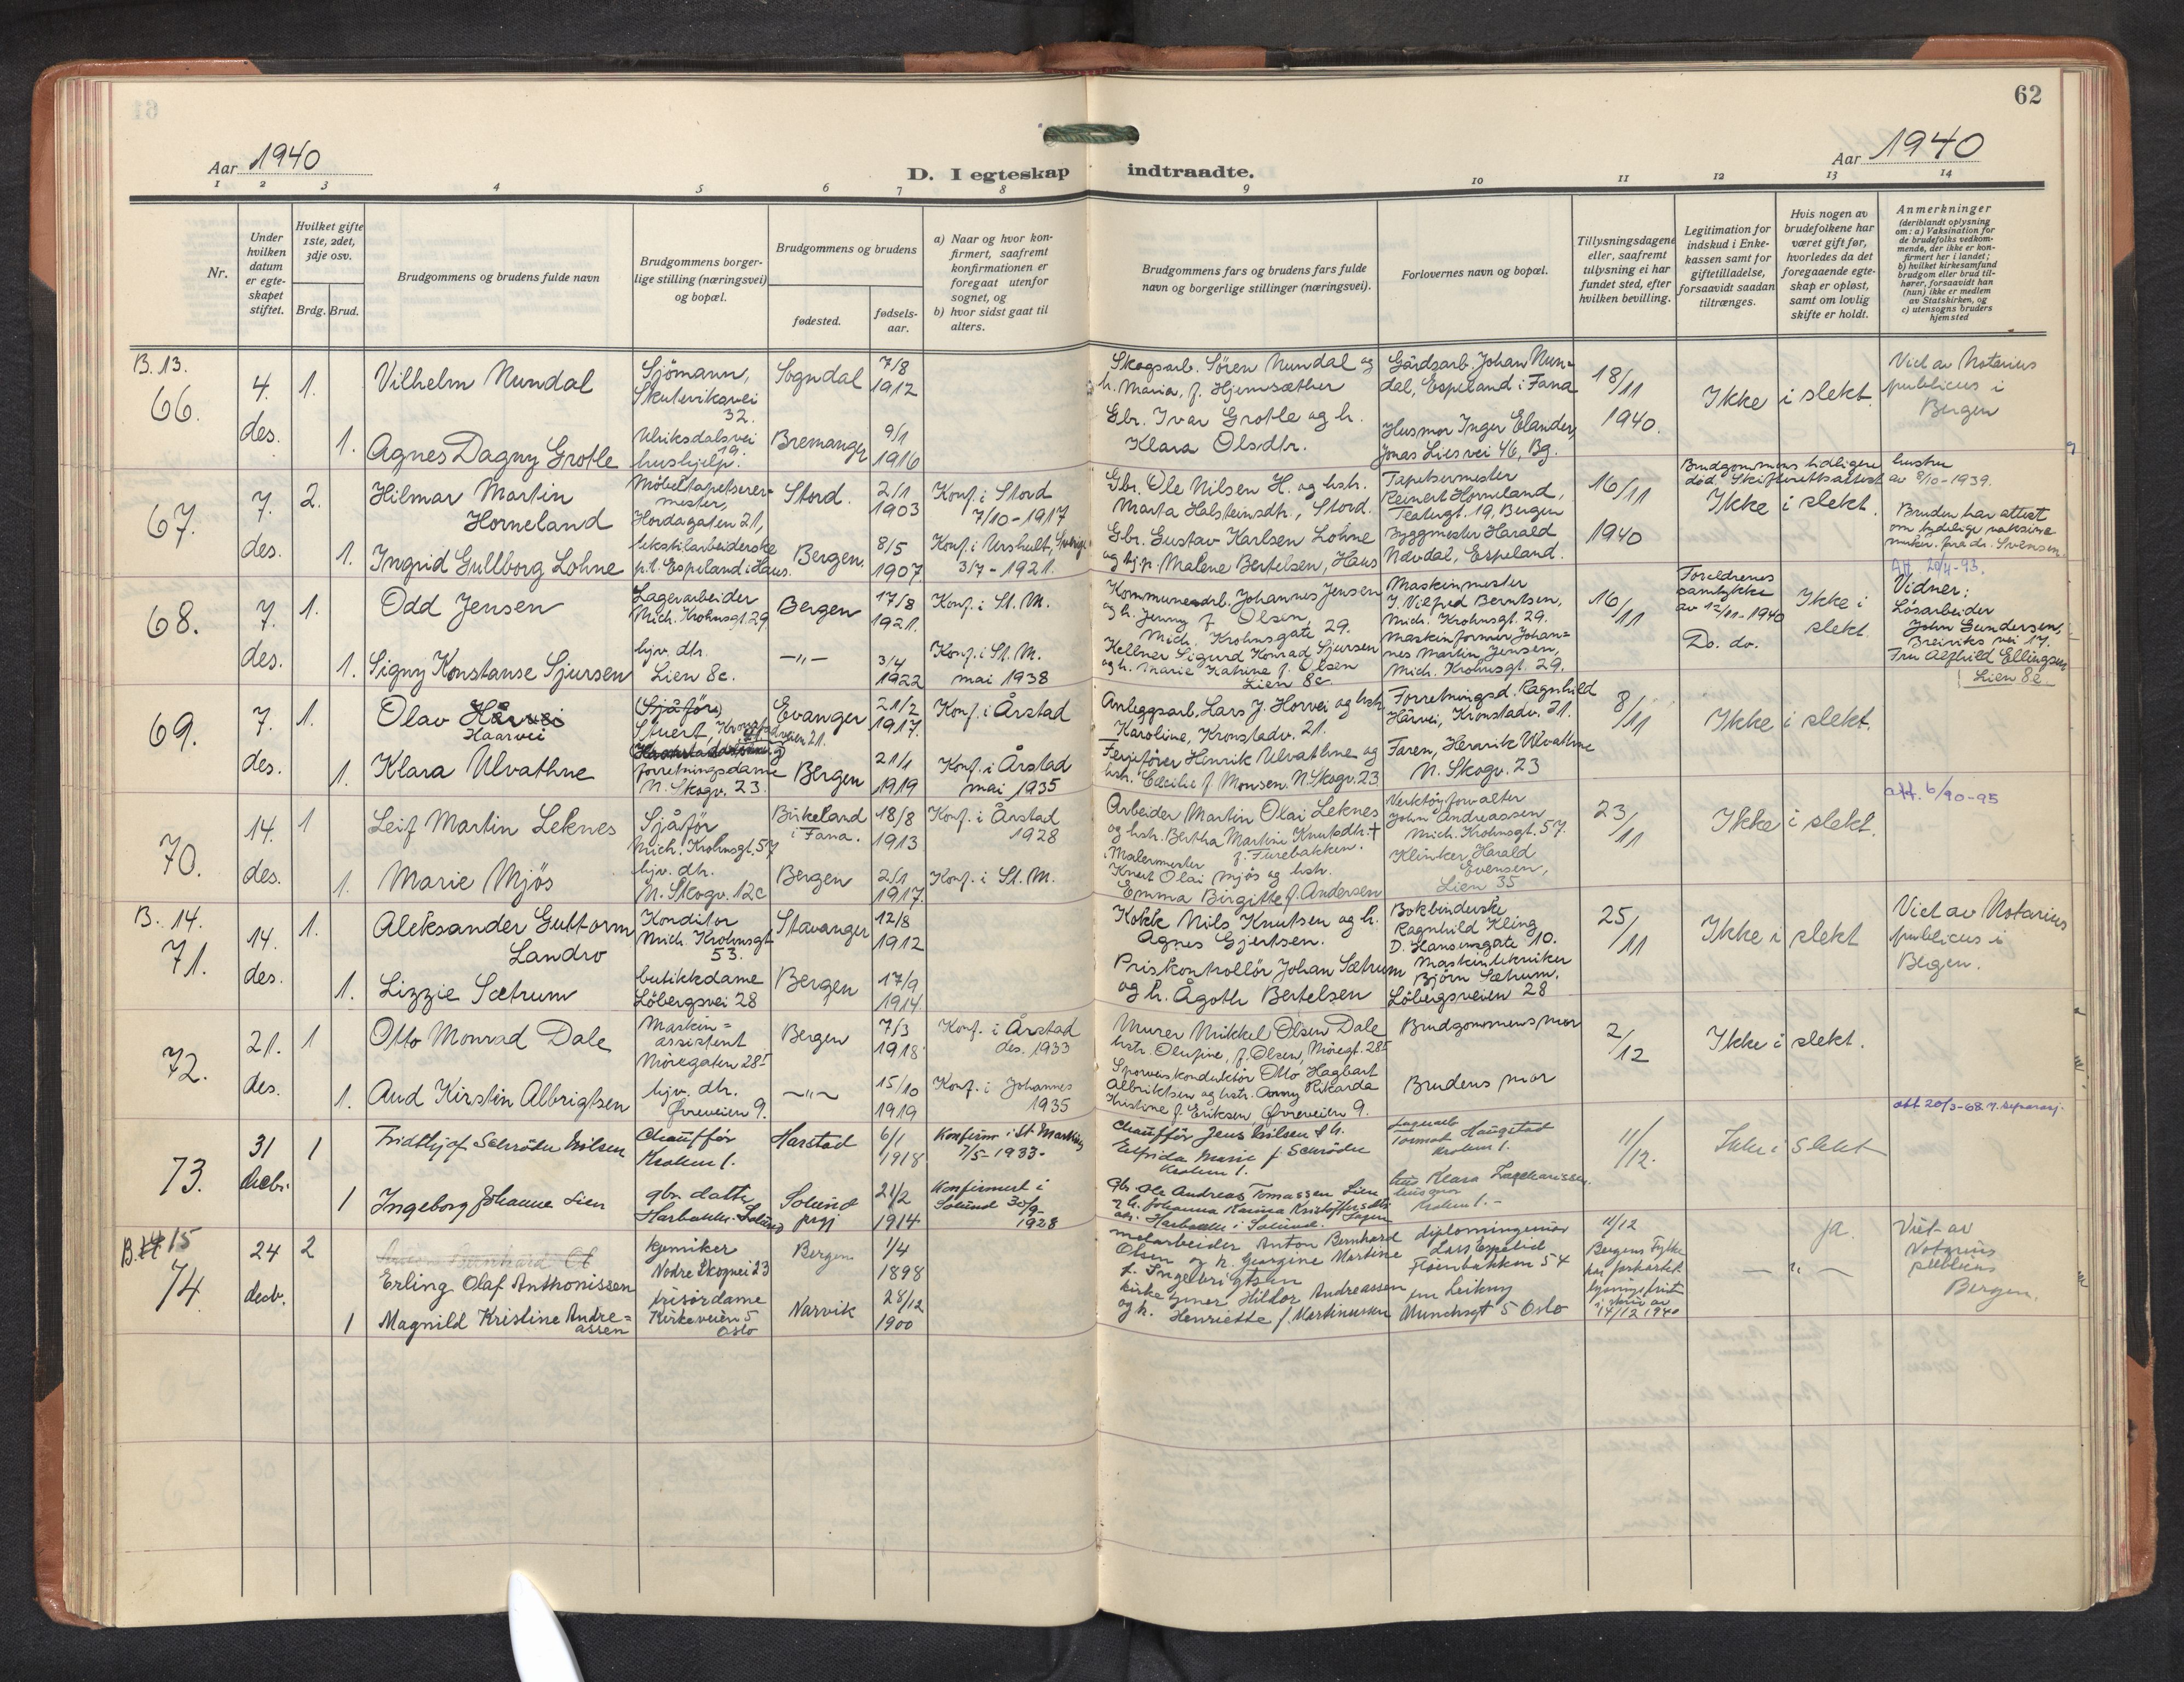 62
Aar 1940
D. I egteskap indtraadte.
Aar 1940
1 2 3 4 5 6 7 8 9 10 11 12 13 14
Nr.
Under hvilken datum er egteskapet stiftet.
Hvilket gifte 1ste, 2det, 3dje osv.
Brdg. Brud.
Brudgommens og brudens fulde navn
Brudgommens borgerlige stilling (næringsvei) og bopæl.
Brudgommens og brudens
fødested.
fødselsaar.
a) Naar og hvor konfirmert, saafremt konfirmationen er foregaat utenfor sognet, og
b) hvor sidst gaat til alters.
Brudgommens fars og brudens fars fulde navn og borgerlige stillinger (næringsvei).
Forlovernes navn og bopæl.
Tillysningsdagene eller, saafremt tillysning ei har fundet sted, efter hvilken bevilling.
Legitimation for indskud i Enkekassen samt for giftetilladelse, forsaavidt saadan tiltrænges.
Hvis nogen av brudefolkene har været gift før, hvorledes da det foregaaende egteskap er opløst, samt om lovlig skifte er holdt.
Anmerkninger
(deriblandt oplysning om: a) Vaksination for de brudefolks vedkommende, der ikke er konfirmert her i landet; b) hvilket kirkesamfund brudgom eller brud tilhører, forsaavidt han (hun) ikke er medlem av Statskirken, og c) utensogns bruders hjemsted
B. 13.
66.
4. des.
1.
Vilhelm Nundal
Sjömann, Skuteviksvei 32.
Sogndal
7/8 1912
Skogsarb. Sören Nundal og h. Maria, f. Hjemsæther
Gårdsarb. Johan Nundal, Espeland i Fana
18/11 1940.
Ikke i slekt.
Viet av Notarius publicus i Bergen
1.
Agnes Dagny Grotle
Ulriksdalsvei 19. hushjelp.
Bremanger
9/1 1916
Gbr. Ivar Grotle og h. Klara Olsdtr.
Husmor Inger Elander, Jonas Lies vei 46, Bg.
67.
7. des.
2.
Hilmar Martin Horneland
Möbeltapetserermester, Hordagaten 21,
Stord.
2/1 1903
Konf. i Stord 7/10 - 1917
Gbr. Ole Nilsen H. og hstr. Marta Halsteinsdtr., Stord.
Tapetsermester Reinert Horneland, Teatergt. 19. Bergen
16/11 1940
Brudgommens tidligere hustru död. Skifterettsattest av 8/10 - 1939.
Ikke i slekt.
1.
Ingrid Gullborg Lohne
tekstilarbeiderske p.t. Espeland i Haus.
Bergen.
8/5 1907
Konf. i Urshult, Sverige 3/7 - 1921.
Gbr. Gustav Karlsen Lohne og hst. Malene Bertelsen, Haus
Byggmester Harald Nævdal, Espeland.
Bruden har attest om tydelige vaksinemerker fra dr. Svensen.
68.
7. des.
1.
Odd Jensen
Lagerarbeider Mich. Krohnsgt. 29
Bergen
17/8 1921.
Konf. i St. M.
Kommunearb. Johannes Jensen og h. Jenny f. Olsen, Mich. Krohnsgate 29.
Maskinmester J. Vilfred Berntsen, Mich. Krohnsgt. 29.
16/11
Foreldrenes samtykke av 12/11 - 1940
Do. do.
Ikke i slekt.
Att. 20/4-93.
Vidner: Lösarbeider John Gundersen, Breiviks vei 17. Fru Alfhild Ellingsen Lien 8e.
1.
Signy Konstanse Sjursen
hjv. dtr. Lien 8c.
— " —
3/4 1922
Konf. i St. M. mai 1938
Kellner Sigurd Konrad Sjursen og h. Marie Katrine f. Olsen Lien 8c
Maskinformer Johannes Martin Jensen, Mich. Krohnsgt. 29.
69.
7. des.
1.
Olav Hårvei
Haarvei
(Sjåför) Stuert, Kronstadveien 21.
Evanger
21/2 1917.
Konf. i Årstad
Anleggsarb. Lars J. Horvei og hstr. Karoline, Kronstadv. 21.
Forretningsd. Ragnhild Hårvei, Kronstadv. 21.
8/11
Ikke i slekt.
1.
Klara Ulvathne
forretningsdame N. Skogv. 23.
Bergen
21/1 1919
Konf. i Årstad mai 1935
Ferjeförer Henrik Ulvathne og hstr. Cecilie f. Monsen. N. Skogv. 23
Faren, Henrik Ulvathne N. Skogv. 23
70.
14. des.
1
Leif Martin Leknes
Sjåför Mich. Krohnsgt. 57
Birkeland i Fana.
18/8 1913
Konf. i Årstad 1928
Arbeider Martin Olai Leknes og hstr. Bertha Martine Knutsdtr. + f. Furebakken.
Verktöyforvalter John Andreassen Mich. Krohnsgt. 57.
23/11
Ikke i slekt.
att. 6/90-95
1.
Marie Mjös
hjv. dtr. N. Skogv. 12c
Bergen
2/1 1917.
Konf. i St. M.
Malermester Knut Olai Mjös og hstr. Emma Birgitte f. Andersen
Klinker Harald Evensen, Lien 35
B. 14.
71.
14. des.
1.
Aleksander Guttorm Landro
Konditor Mich. Krohnsgt 53.
Stavanger
12/8 1912
Kokk Nils Knutsen og h. Agnes Gjertsen.
Bokbinderske Ragnhild Kling D. Hansensgate 10.
25/11
Ikke i slekt
Viet av Notarius publicus i Begen.
1.
Lizzie Sætrum
butikkdame Löbergsvei 28
Bergen
17/9 1914.
Priskontrollör Johan Sætrum og h. Ågoth Bertelsen
Maskintekniker Björn Sætrum, Löbergsveien 28
72.
21. des.
1
Otto Monrad Dale
Maskinassistent Möregaten 28 I
Bergen
7/3 1918
Konf. i Årstad des. 1933
Murer Mikkel Olsen Dale hstr. Olufine, f. Olsen, Möregt. 28 I
Brudgommens mor
2/12
Ikke i slekt.
1.
Aud Kirstin Albrigtsen
hjv. dtr. Øvreveien 9.
— " —
15/10 1919
Konf. i Johannes 1935
Sporveiskonduktör Otto Hagbart Albriktsen og hstr. Anny Rikarda Kristine f. Eriksen, Øvreveien 9.
Brudens mor
att 20/3-68 m. separasj.
73.
31 Decbr.
1
Fridthjof Schrøder Nilsen
Chauffør Krohnu 1.
Harstad
6/1 1918
Konfirm. i St. Markus 7/5 - 1933-
Chauffør Jens Nilsen & h. Elfrida Marie f. Schrøder Krohnu 1.
Lagerarb Tormod Haugstad Krohnu 1.
11/12.
Ikke i slekt
1
Ingeborg Johanne Lien
gbr. datter Harbakke. Solund
Solund prgj
21/2 1914
Konfirmert i Solund 30/9- 1928
gbr. Ole Andreas Tomassen Lien & h. Johanna Karina Kristoffersdtr Harbakke i Solund.
fru Klara Zachariassen husmor Krohnu 1.-
B. 15
74.
24 decbr.
2
Erling Olaf Anthonissen
kjemiker Nedre Skogvei 23
Bergen
1/4 1898
metarbeider Anton Bernhard Olsen og h. Georgine Martine f. Ingebrigtsen
diplomingeniør Lars Espelid Fløenbakken 54
11/12 Bergens Fylke har forkortet lysningsfristen i skriv av 17/12 1940
— " —
ja.
Viet av Notarius publicus Bergen.
1
Magnild Kristine Andreassen
frisørdame Kirkeveien 5 Oslo
Narvik
28/12 1900
kirketjener Hildor Andreassen og h. Henriette f. Martinussen
Munchsgt 5 Oslo